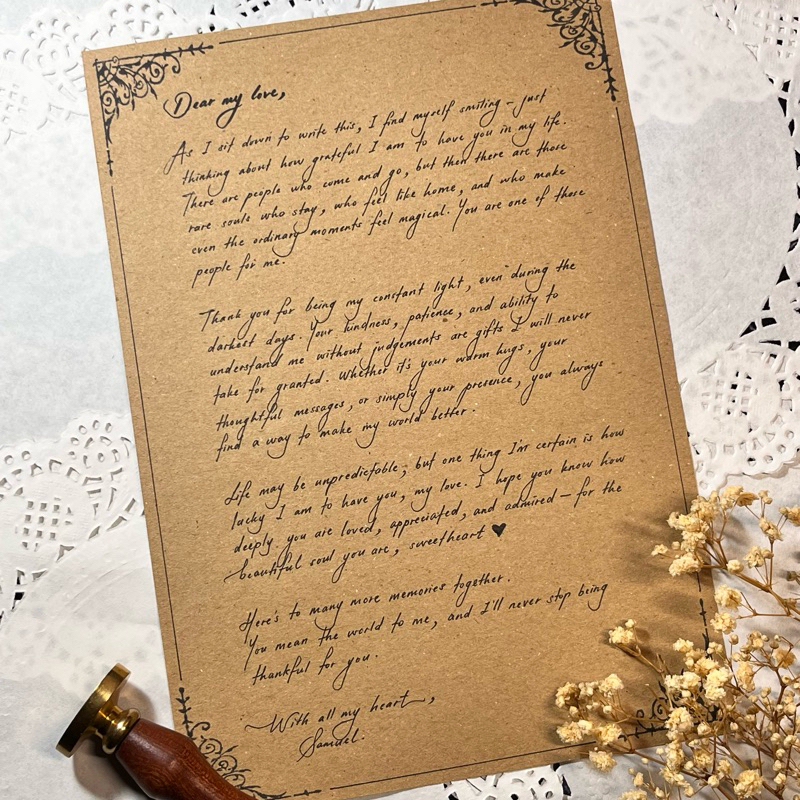 Dear my love,
As I sit down to write this, I find myself smiling – just
thinking about how grateful I am to have you in my life.
There are people who come and go, but then there are those
rare souls who stay, who feel like home, and who make
even the ordinary moments feel magical. You are one of those
people for me.
Thank you for being my constant light, even during the
darkest days. Your kindness, patience, and ability to
understand me without judgements are gifts I will never
take for granted. Whether it's your warm hugs, your
thoughtful messages, or simply your presence, you always
find a way to make my world better.
Life may be unpredictable, but one thing I'm certain is how
lucky I am to have you, my love. I hope you know how
deeply you are loved, appreciated, and admired – for the
beautiful soul you are, sweetheart ♥
Here's to many more memories together.
You mean the world to me, and I'll never stop being
thankful for you.
With all my heart,
Samuel.